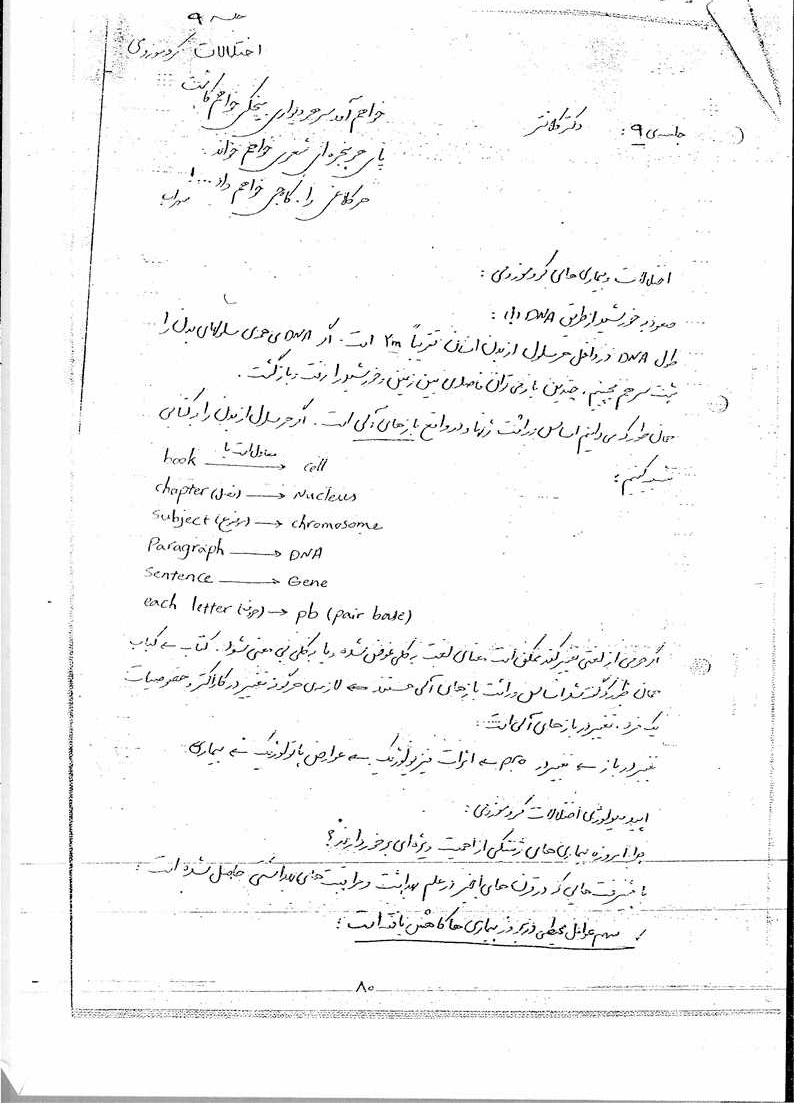 جلسه ۹
اختلالات کروموزومی
خواهم آمد سر هر دیواری میخکی خواهم کاشت
جلسه‌ی ۹: دکتر کلانتر
پای هر پنجره‌ای شعری خواهم خواند.
هر کلاغی را، کاجی خواهم داد....!
سهراب
اختلالات و بیماری‌های کروموزومی:
صعود به خورشید از طریق DNA (!):
طول DNA در داخل هر سلول از بدن انسان تقریباً ۲m است. اگر DNA ی همه‌ی سلولهای بدن را
پشت سر هم بچینیم، چندین بار می‌توان فاصله‌ی بین زمین و خورشید را رفت و بازگشت.
همان طور که می‌دانیم اساس وراثت ژنها و در واقع بازهای آلی است. اگر هر سلول از بدن را به کتابی
تشبیه کنیم:
book معادل است با → cell
chapter (فصل) → Nucleus
Subject (موضوع) → chromosome
Paragraph → DNA
Sentence → Gene
each letter (حرف) → pb (pair base)
اگر حرفی از لغتی تغییر کند ممکن است معنای لغت به کلی عوض شده و یا به کلی بی معنی شود. کتاب ⇒ کباب
همان طور که گفته شد اساس وراثت بازهای آلی هستند ⇒ لازمه‌ی هرگونه تغییر در کاراکتر و خصوصیات
یک فرد، تغییر در بازهای آلی است:
تغییر در باز ⇒ تغییر در pro ⇒ اثرات فیزیولوژیک ⇒ عوارض پاتولوژیک ⇒ بیماری
اپیدمیولوژی اختلالات کروموزومی:
چرا امروزه بیماری‌های ژنتیکی از اهمیت ویژه‌ای برخوردارند؟
با پیشرفت هایی که در قرن های اخیر در علم بهداشت و مراقبت‌های بهداشتی حاصل شده است:
! سهم عوامل محیطی در بروز بیماری ها کاهش یافته است:
۸۰